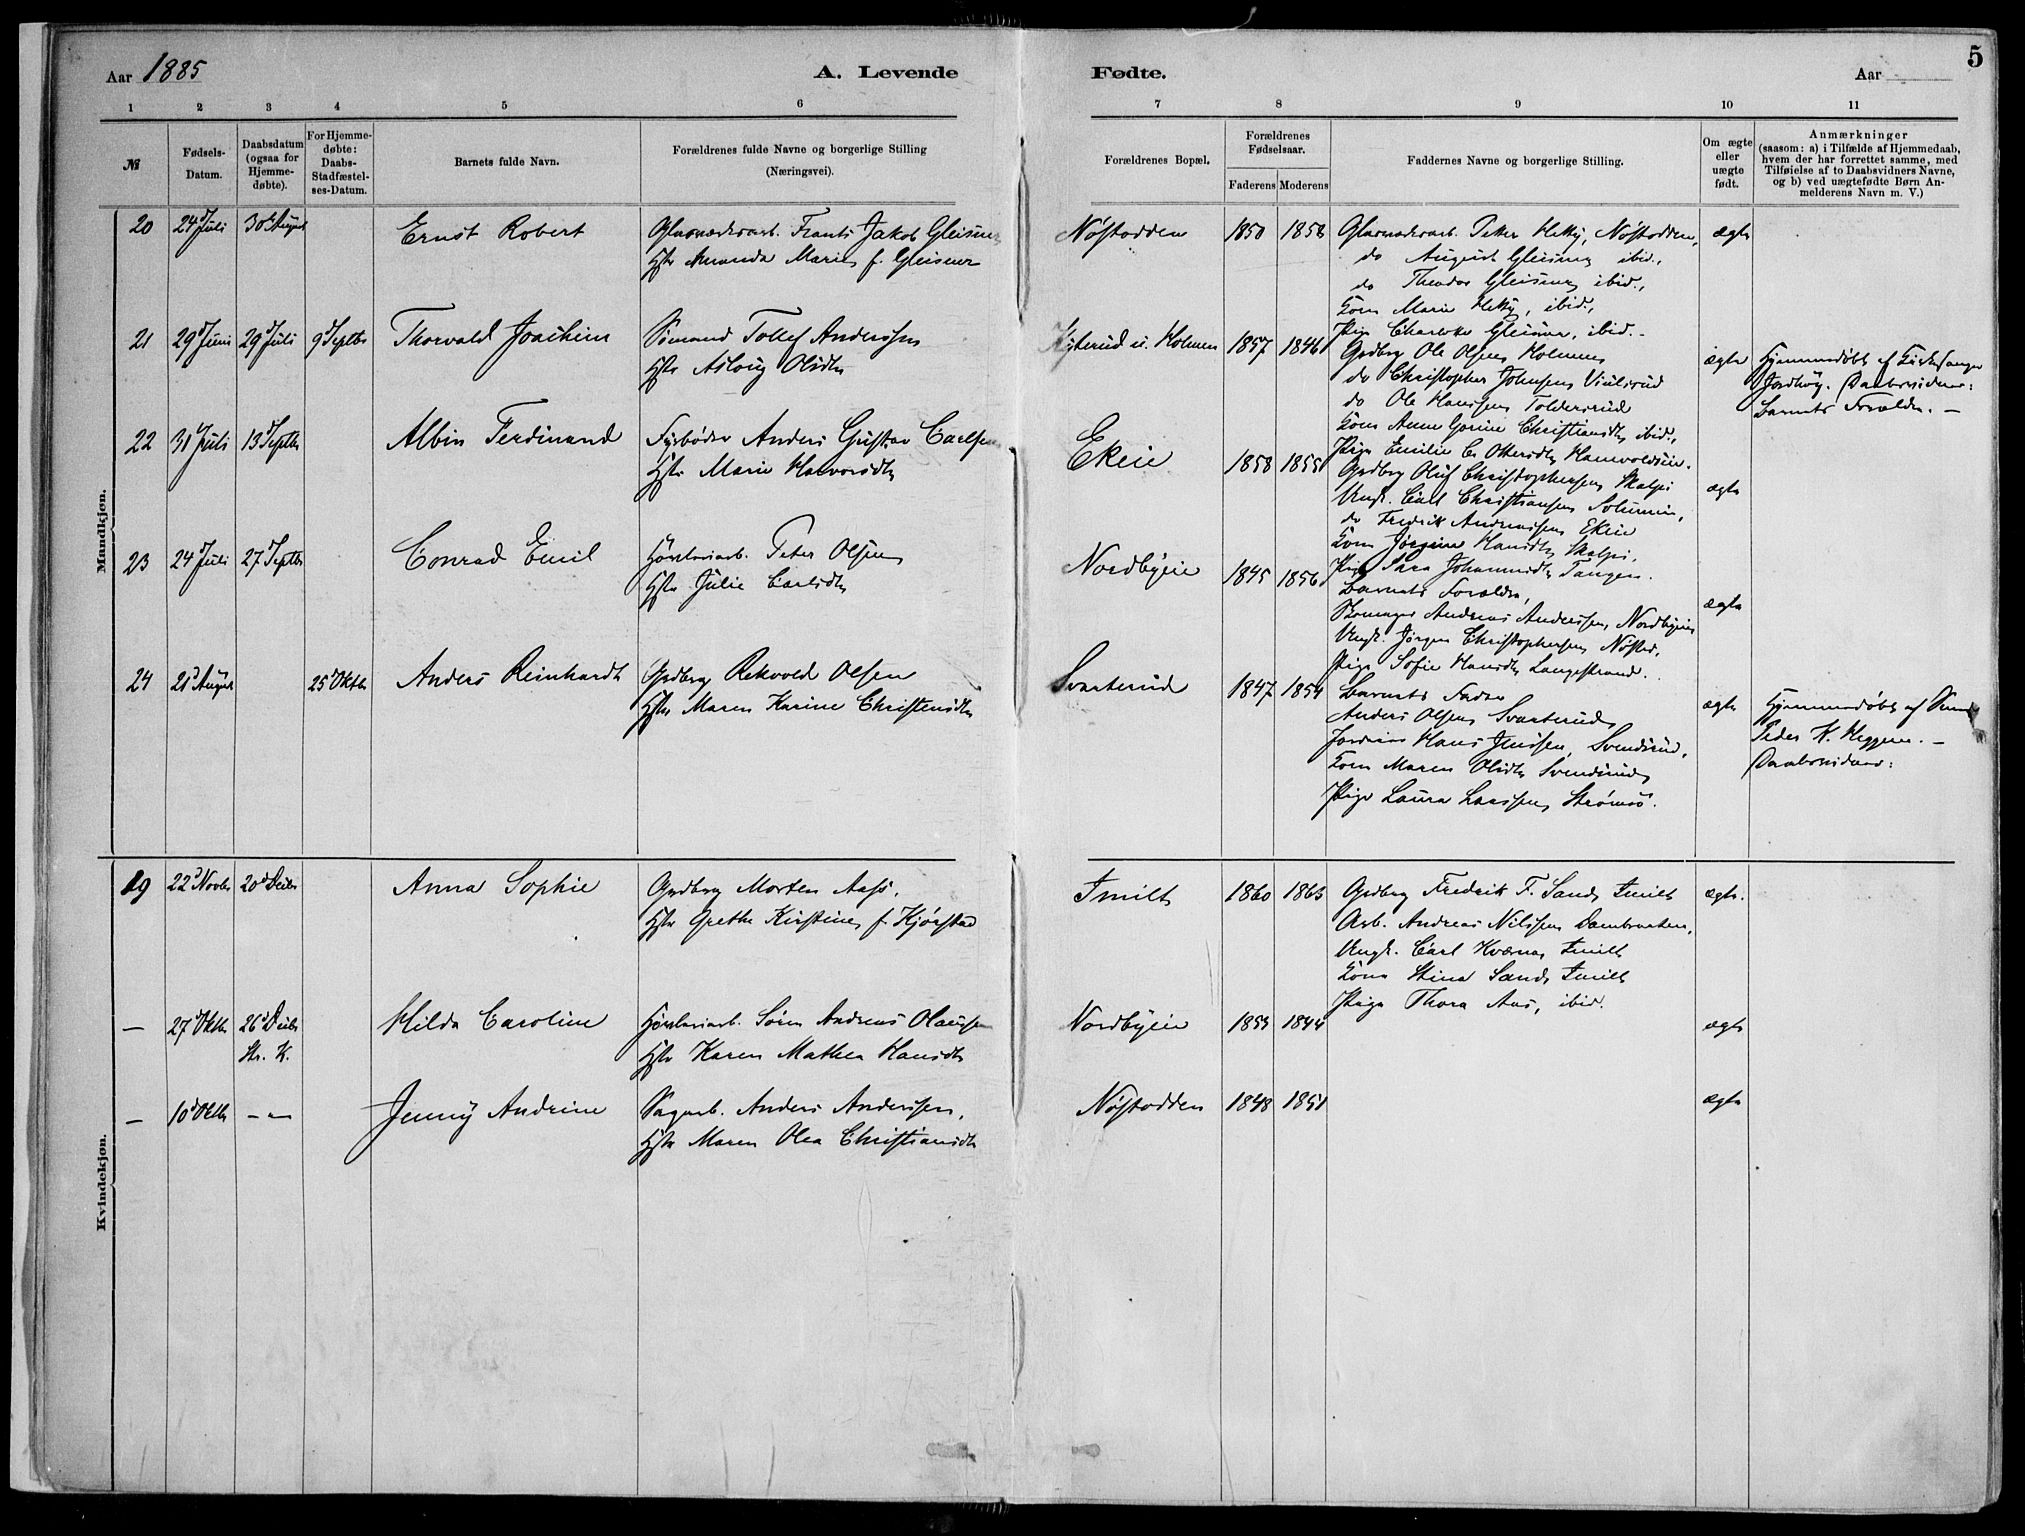 Aar 1885
A. Levende Fødte.
Aar
5
1 2 3 4 5 6 7 8 9 10 11
№
Fødsels-
Datum.
Daabsdatum
(ogsaa for
Hjemme-
døbte).
For Hjemme-
døbte:
Daabs-
Stadfæstel-
ses-Datum.
Barnets fulde Navn.
Forældrenes fulde Navne og borgerlige Stilling
(Næringsvei).
Forældrenes Bopæl.
Forældrenes
Fødselsaar.
Faderens Moderens
Faddernes Navne og borgerlige Stilling.
Om ægte
eller
uægte
født.
Anmærkninger
(saasom: a) i Tilfælde af Hjemmedaab,
hvem der har forrettet samme, med
Tilføielse af to Daabsvidners Navne,
og b) ved uægtefødte Børn An-
melderens Navn m. V.)
Mandkjøn.
20 24 Juli 30 August
Ernst Robert
Frants Jakob
Hstr Amanda Marie f. Gleisner
Nøstodden
1850
Peter Nøstodden,
do August ibid.,
do Theodor ibid.,
Kone Marie ibid.,
Pige ibid.
ægte
21 29 Juni 29 Juli 9 Septbr
Thorvald Joachim
Sømand Tollef Anderssen
Hstr Aslaug Olsdtr
u. Holmen
1857 1846
Grdbrg Ole Olsen Holmen
do Christopher Johnsen
do Ole Hanssen Toldersrud
Kone Anne Gorine Christiansdtr ibid.,
Pige Emilie
ægte
Hjemmedøbt af Kirkesanger
Daabsvidner:
Barnets Forældre. —
22 31 Juli 13 Septbr
Albin Ferdinand
Fyrbøder Anders Gustav Carlsen
Hstr Marie Halvorsdtr
Ekeie
1858 1855
Grdbrg Oluf Christophersen Skalpi
Ungk. Carl Christiansen
do Fredrik Andreassen Ekeie
Kone Jørgine Hansdtr Skalpi,
Pige Sara Johannesdtr Tangen.
ægte
23 24 Juli 27 Septbr
Conrad Emil
Peter Olsen
Hstr Julie Carlsdtr
Nordbyeie
1845 1856
Barnets Forældre,
Skomager Andreas Anderssen, Nordbyeie
Ungk. Jørgen Christophersen Nøsted,
Pige Sofie Hansdtr Langestrand.
ægte
24 21 August 25 Oktbr
Anders Reinhardt
Grdbrg Rekvold Olsen
Hstr Maren Karine Christensdtr
Svarterud
1847 1854
Barnets Fader
Anders Olsen Svarterud,
Hans Jenssen, Svendsrud,
Kone Maren Olsdtr Svendsrud,
Pige Laura Larssen, Strømsø.
ægte
Hjemmedøbt af
Peder K. Heggen. —
Daabsvidner:
Kvindekjøn.
19 22 Novbr 20 Decbr
Anna Sophie
Grdbrg Morten Aass,
Hstr Grethe Kirstine f. Kjørstad
Smilt
1860 1863
Grdbrg Fredrik F. Sand, Smilt
Arb. Andreas Nilssen Dambraaten,
Ungk. Carl Kværna, Smilt
Kone Stina Sand, Smilt
Pige Thora Aas, ibid.
ægte.
— 27 Oktbr 26 Decbr
Str. K.
Hilda Caroline
Søren Andreas Olaussen
Hstr Karen Mathea Hansdtr
Nordbyeie
1853 1844
ægte
— 10 Oktbr — „ —
Jenny Andrine
Sagarb. Anders Anderssen,
Hstr Maren Olea Christiansdtr
Nøstodden
1848 1851
ægte